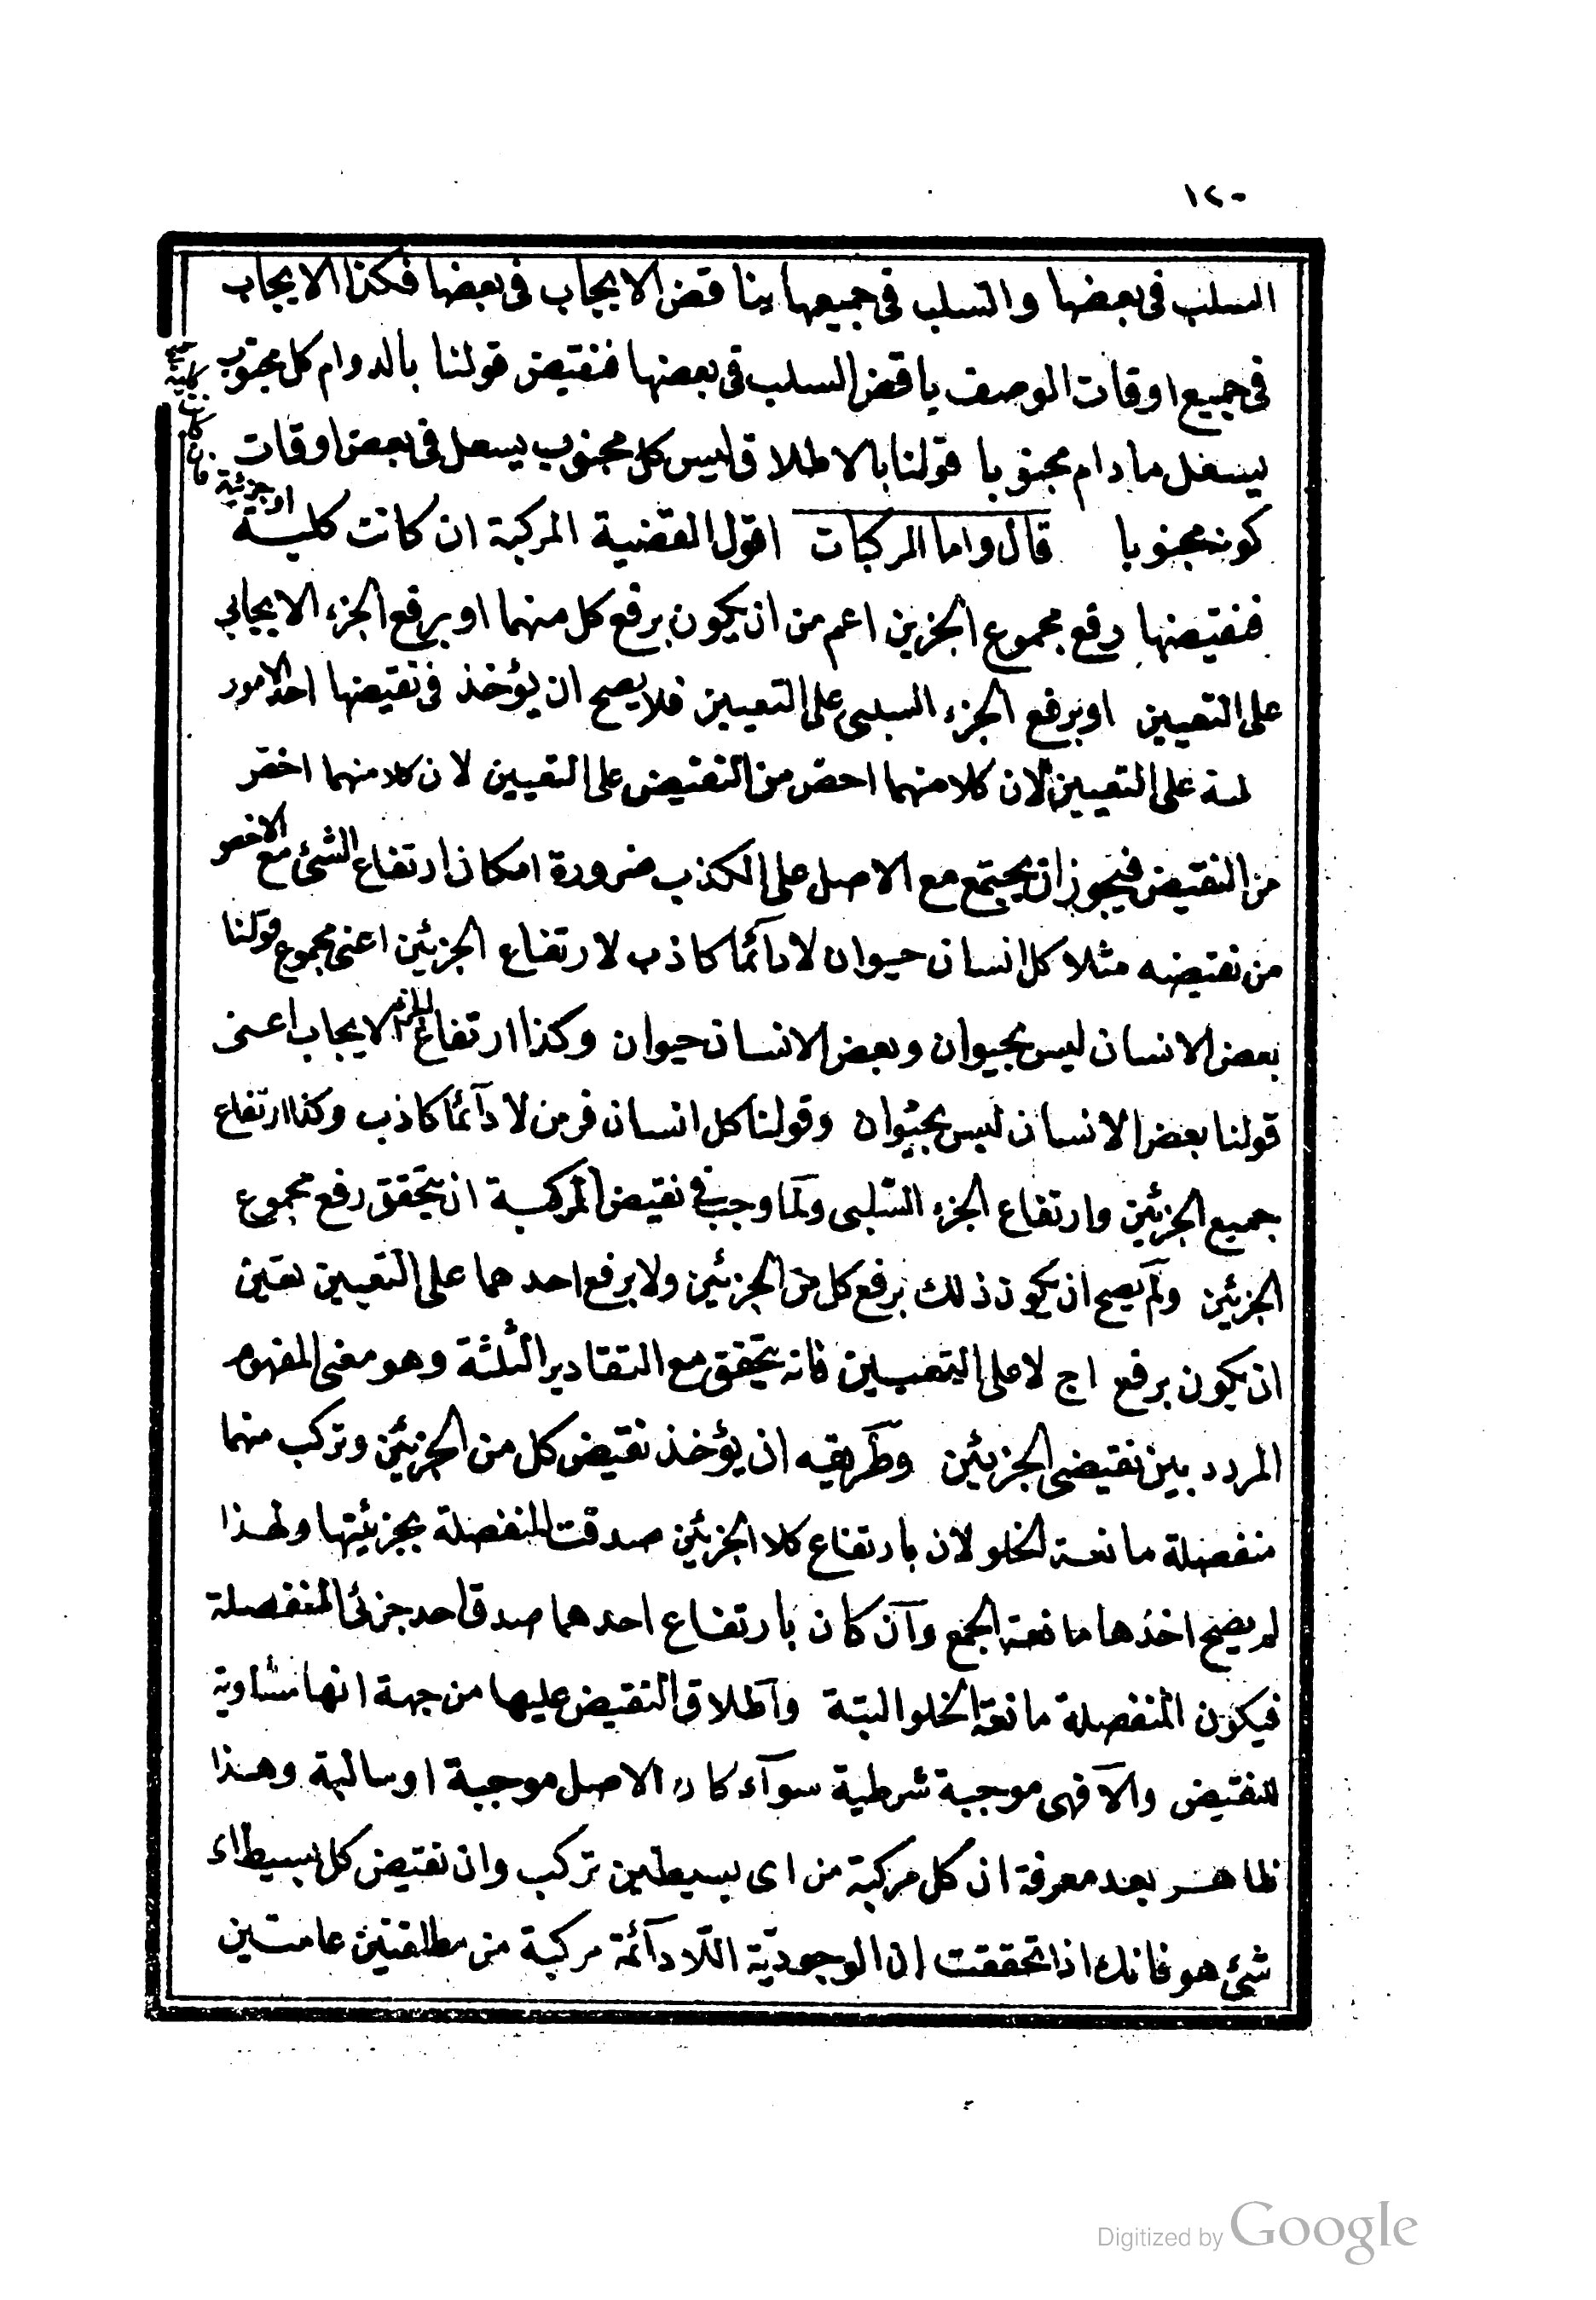 ١٢٠
السلب فى بعضها والسلب فى جميعها يناقض الايجاب فى بعضها فكذا الايجاب
فى جميع اوقات الوصف يناقض السلب فى بعضها فنقيض قولنا بالدوام كل مجنوب
يسعل مادام مجنوبا قولنا بالاطلاق ليس كل مجنوب يسعل فى بعض اوقات
كونه مجنوبا قال واما المركبات اقول القضية المركبة ان كانت كلية او جزئية
فان كانت كلية صح
فنقيضها رفع مجموع الجزين اعم من ان يكون برفع كل منهما او برفع الجزء الايجابي
على التعيين او برفع الجزء السلبى على التعيين فلا يصح ان يؤخذ فى نقيضها احد الامور
لثه على التعيين لان كلا منهما اخص من النقيض على التعيين لان كلا منهما اخص
من النقيض فيجوز ان يجتمع مع الاصل على الكذب ضرورة امكان ارتفاع الشئ مع الاخص
من نقيضه مثلا كل انسان حيوان لا دآئما كاذب لارتفاع الجزئين اعنى مجموع قولنا
بعض الانسان ليس بحيوان وبعض الانسان حيوان وكذا ارتفاع الجزء الايجاب اعنى
قولنا بعض الانسان ليس بحيوان وقولنا كل انسان فرس لا دآئما كاذب وكذا ارتفاع
جميع الجزئين وارتفاع الجزء السلبى ولما وجب فى نقيض المركبة ان يتحقق رفع مجموع
الجزئين ولم يصح ان يكون ذلك برفع كل من الجزئين ولا برفع احدهما على التعيين تعين
ان يكون برفع اج لا على التعيين فانه يتحقق مع التقادير الثلثة وهو معنى المفهوم
المردد بين نقيضى الجزئين وطريقه ان يؤخذ نقيض كل من الجزئين وتركب منهما
منفصلة مانعة الخلو لان بارتفاع كلا الجزئين صدقت المنفصلة بجزئيتها ولهذا
لم يصح اخذها مانعة الجمع وان كان بارتفاع احدهما صدق احد جزئى المنفصلة
فيكون المنفصلة مانعة الخلو البتة واطلاق النقيض عليها من جهة انها مساوية
للنقيض والا فهى موجبة شرطية سوآء كان الاصل موجبة او سالبة وهذا
ظاهر بعد معرفة ان كل مركبة من اى بسيطين تركب وان نقيض كل بسيط اى
شئ هو فانك اذا تحققت ان الوجودية اللادآئمة مركبة من مطلقتين عامتين
Digitized by Google